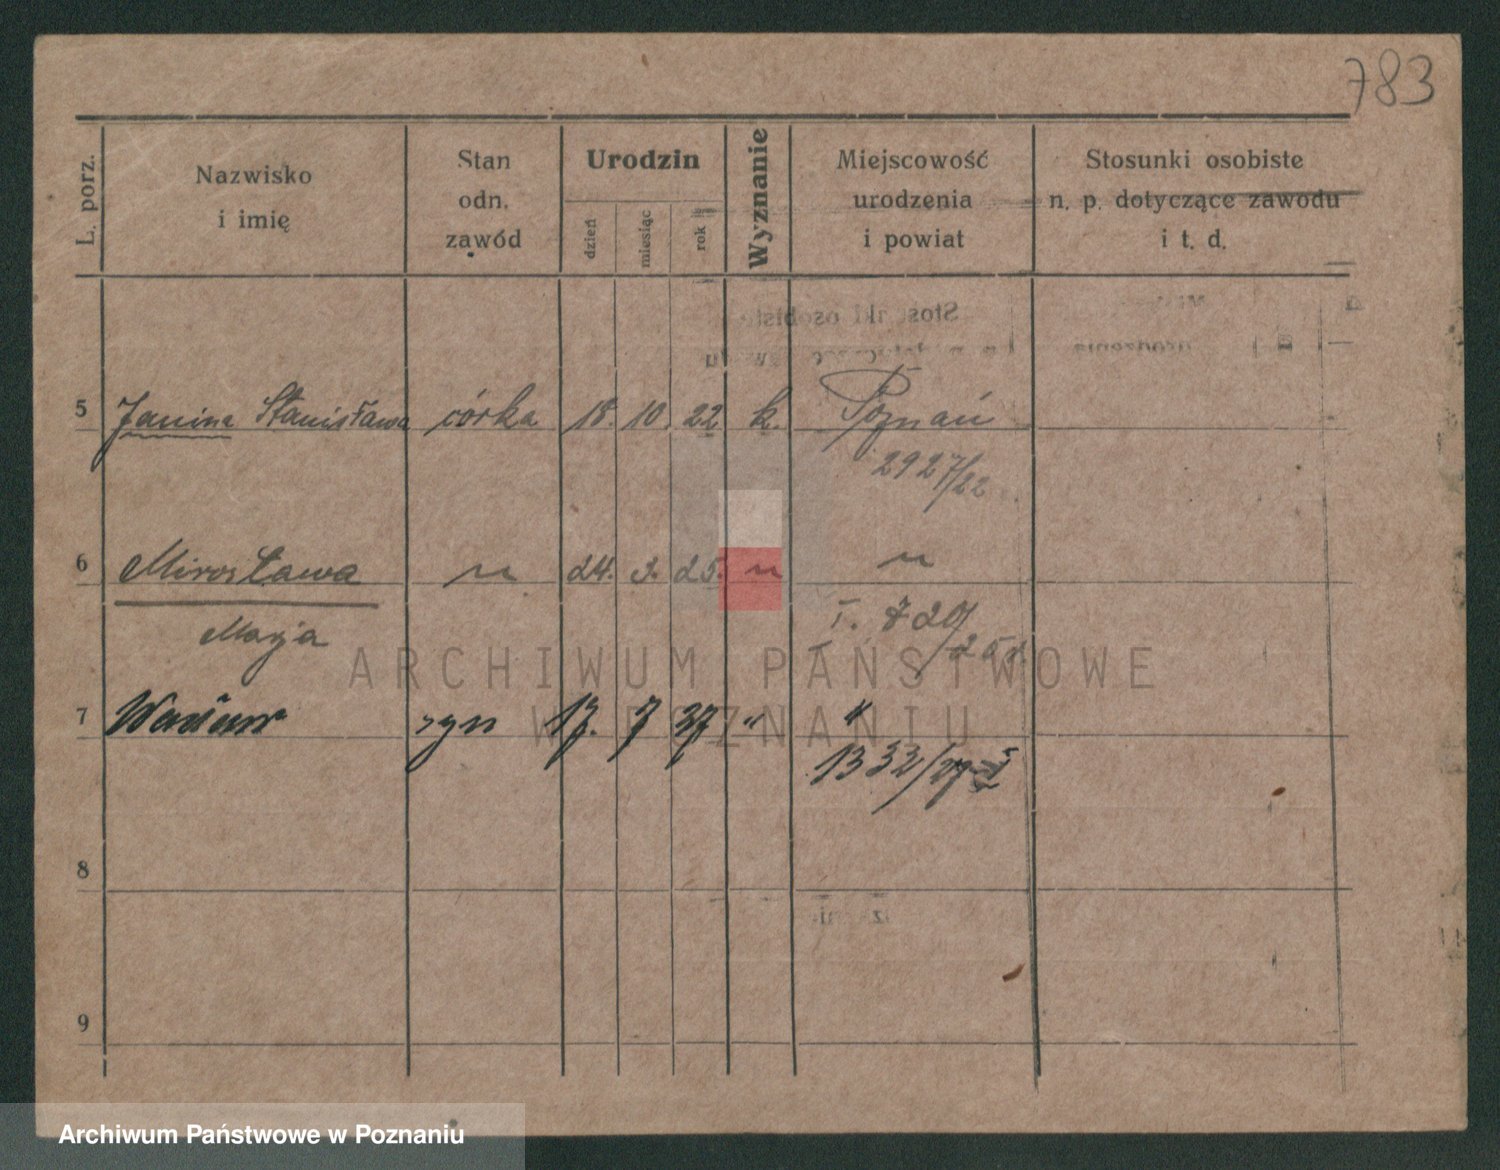 783
L. porz.
Nazwisko
i imię
Stan
odn.
zawód
Urodzin
dzień
miesiąc
rok
Wyznanie
Miejscowość
urodzenia
i powiat
Stosunki osobiste
n. p. dotyczące zawodu
i t. d.
5 Janina Stanisława córka 18. 10. 22 k. Poznań
2927/22
6 Mirosława " 24. 25. " "
I. 720/25
Marja
ARCHIWUM PAŃSTWOWE
W POZNANIU
7 syn 17. 7 37 " "
1332/37
8
9
Archiwum Państwowe w Poznaniu